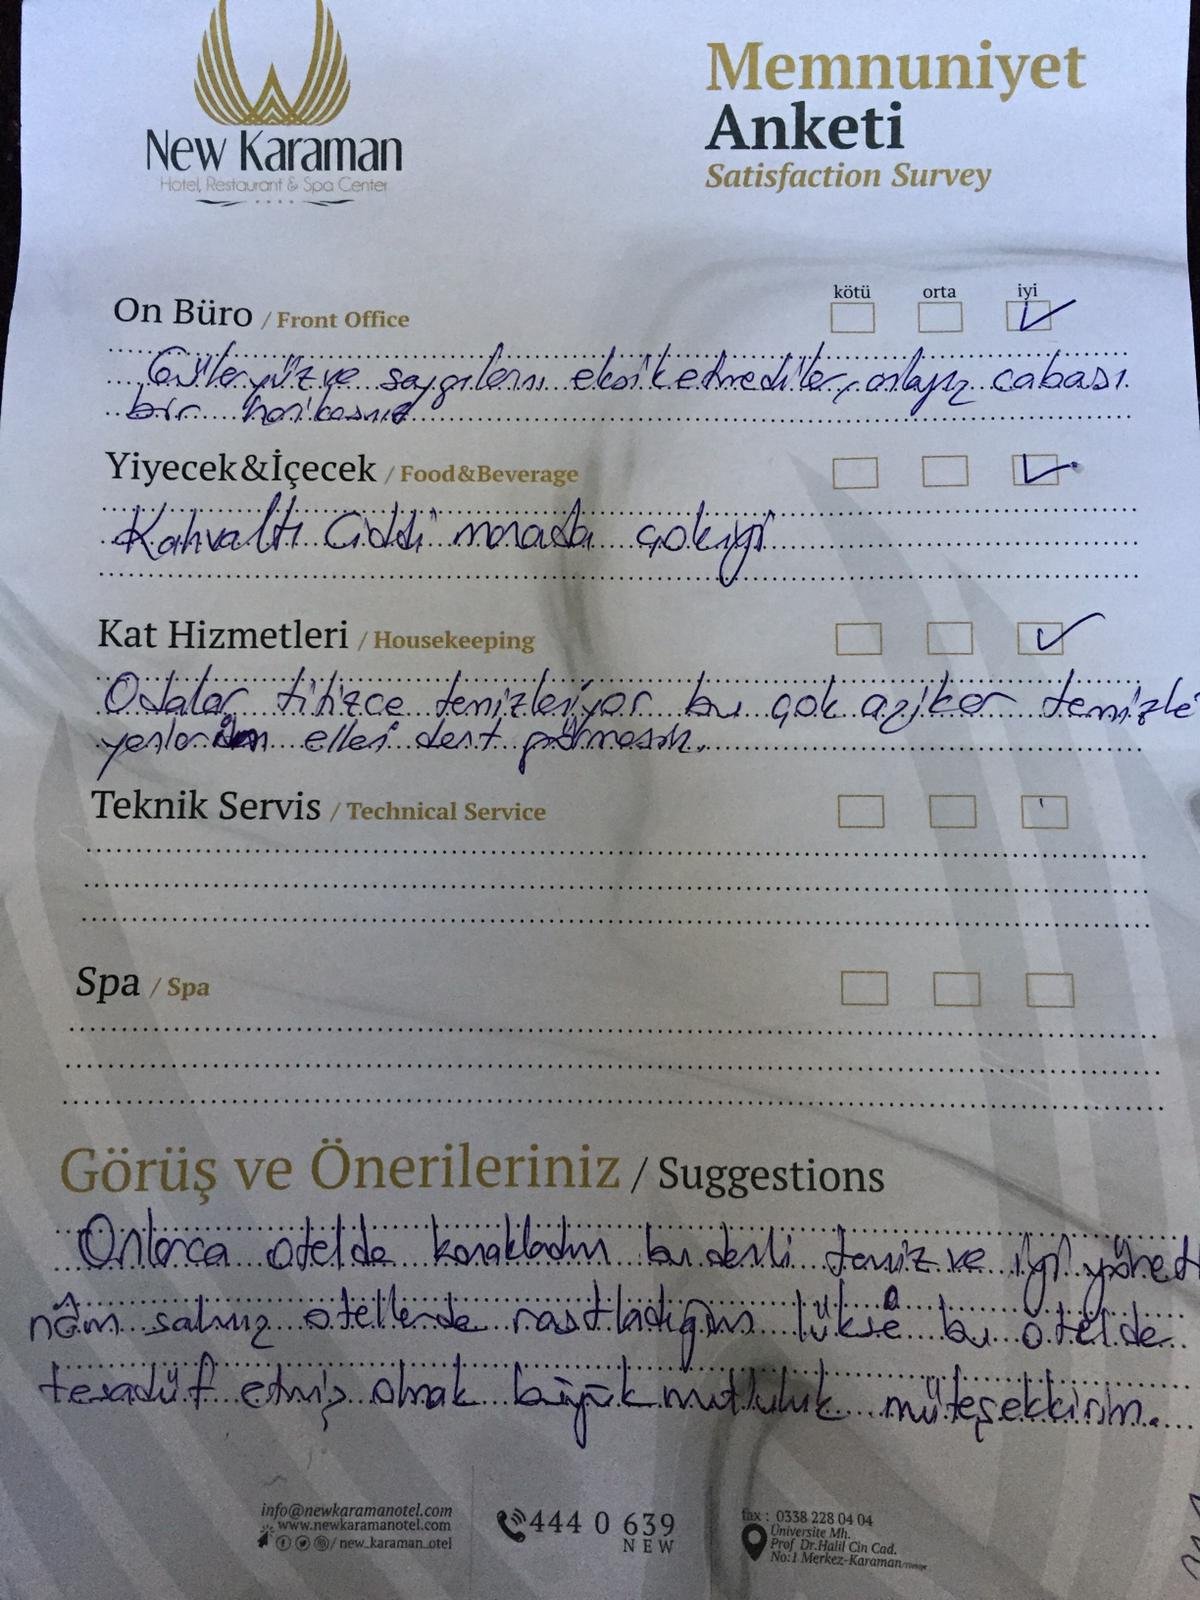 New Karaman
Hotel, Restaurant & Spa Center
Memnuniyet
Anketi
Satisfaction Survey
kötü orta iyi
On Büro / Front Office
Güleryüz ve saygılarını eksik etmediler, onlayız cabası
bir harikasınız
Yiyecek&İçecek / Food&Beverage
Kahvaltı Ciddi manada çok iyi
Kat Hizmetleri / Housekeeping
Odalar titizce temizleniyor bu çok aşikar temizle
yenlerin elleri dert görmesin.
Teknik Servis / Technical Service
Spa / Spa
Görüş ve Önerileriniz / Suggestions
Onlarca otelde konakladım bu denli temiz ve ilgi yönet
nâm salmış otellerde rastladığım lükse bu otelde
tesadüf etmiş olmak büyük mutluluk müteşekkirim.
info@newkaramanotel.com
www.newkaramanotel.com
/ new_karaman_otel
444 0 639
NEW
fax : 0338 228 04 04
Üniversite Mh.
Prof Dr.Halil Cin Cad.
No:1 Merkez-Karaman